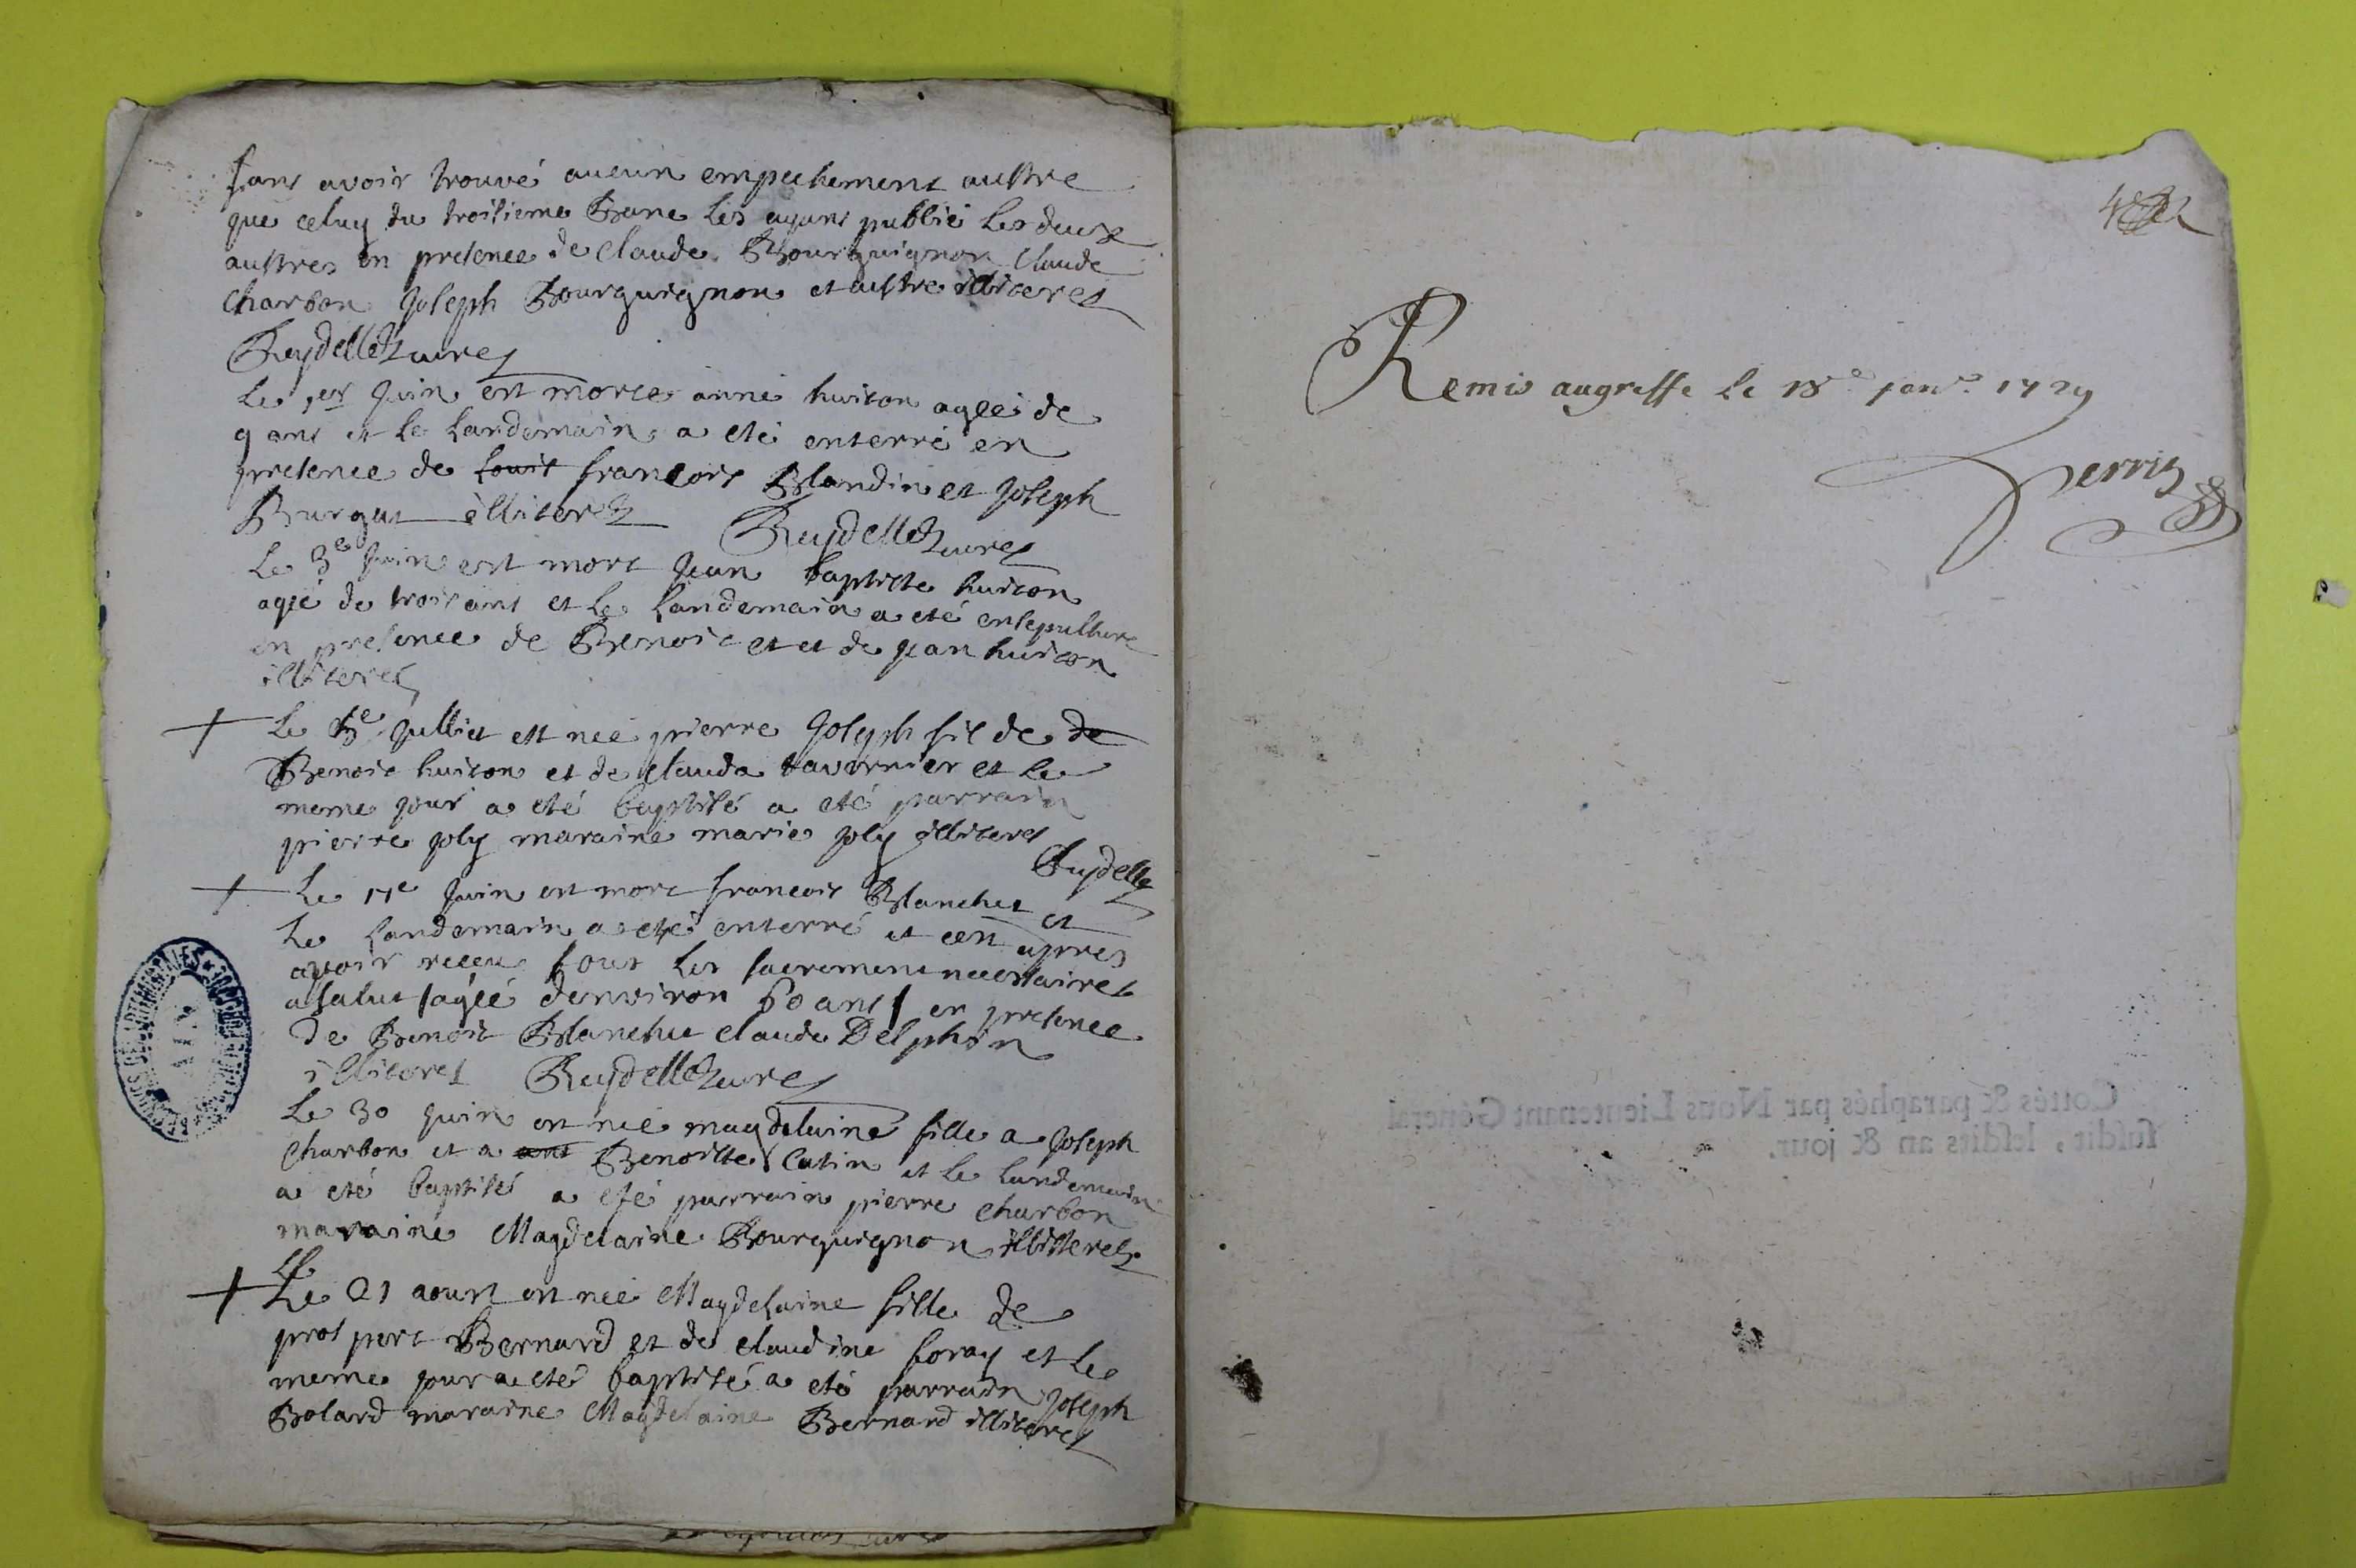 sans avoir trouvé aucun empechement austre
que celuy du troisieme Banc les ayans publié les deux
austres en presence de claude Bourguignon claude
charbon Joseph Bourguignon et austre illiteres
Reydellet cure
Le 1er Juin est morte anne huiton agée de
9 ans et le Landemain a eté enterré en
presence de Louis francois Blandin et Joseph
Burgat illiteres Reydellet cure
Le 3e Juin est mort Jean baptiste huiton
agé de trois ans et le Landemain a eté ensepulture
en presence de Benoit et et de jean huiton
illiteres
Le 5e Julliet est neé pierre Joseph fil de de
Benoit huiton et de clauda tavernier et le
meme jour a eté baptisé a eté parrain
pierre joly maraine marie joly illiteres
Reydellet
Le 17e Juin est mort francois Blanchet et
Le Landemain a eté enterré et cest apres
avoir receu tous les sacrement necessaires
a salut agée denviron 60 ans en presence
de Benoit Blanchet claude Delphin
illiteres Reydellet cure
Le 30 juin est neé magdelaine fille a Joseph
Charbon et a Benoitte Catin et le Landemain
a eté baptisés a eté parrain pierre charbon
maraine Magdelaine Bourguignon illisteres
Le
Le 21 aoust est neé Magdelaine fille de
prospert Bernard et de claudine foray et le
meme jour a eté baptisé a eté parrain Joseph
Bolard maraine Magdelaine Bernard illiteres
Remis au greffe le 18e janv. 1729
Perrin
Cottés & paraphés par Nous Lieutenant Général
susdit, lesdits an & jour.